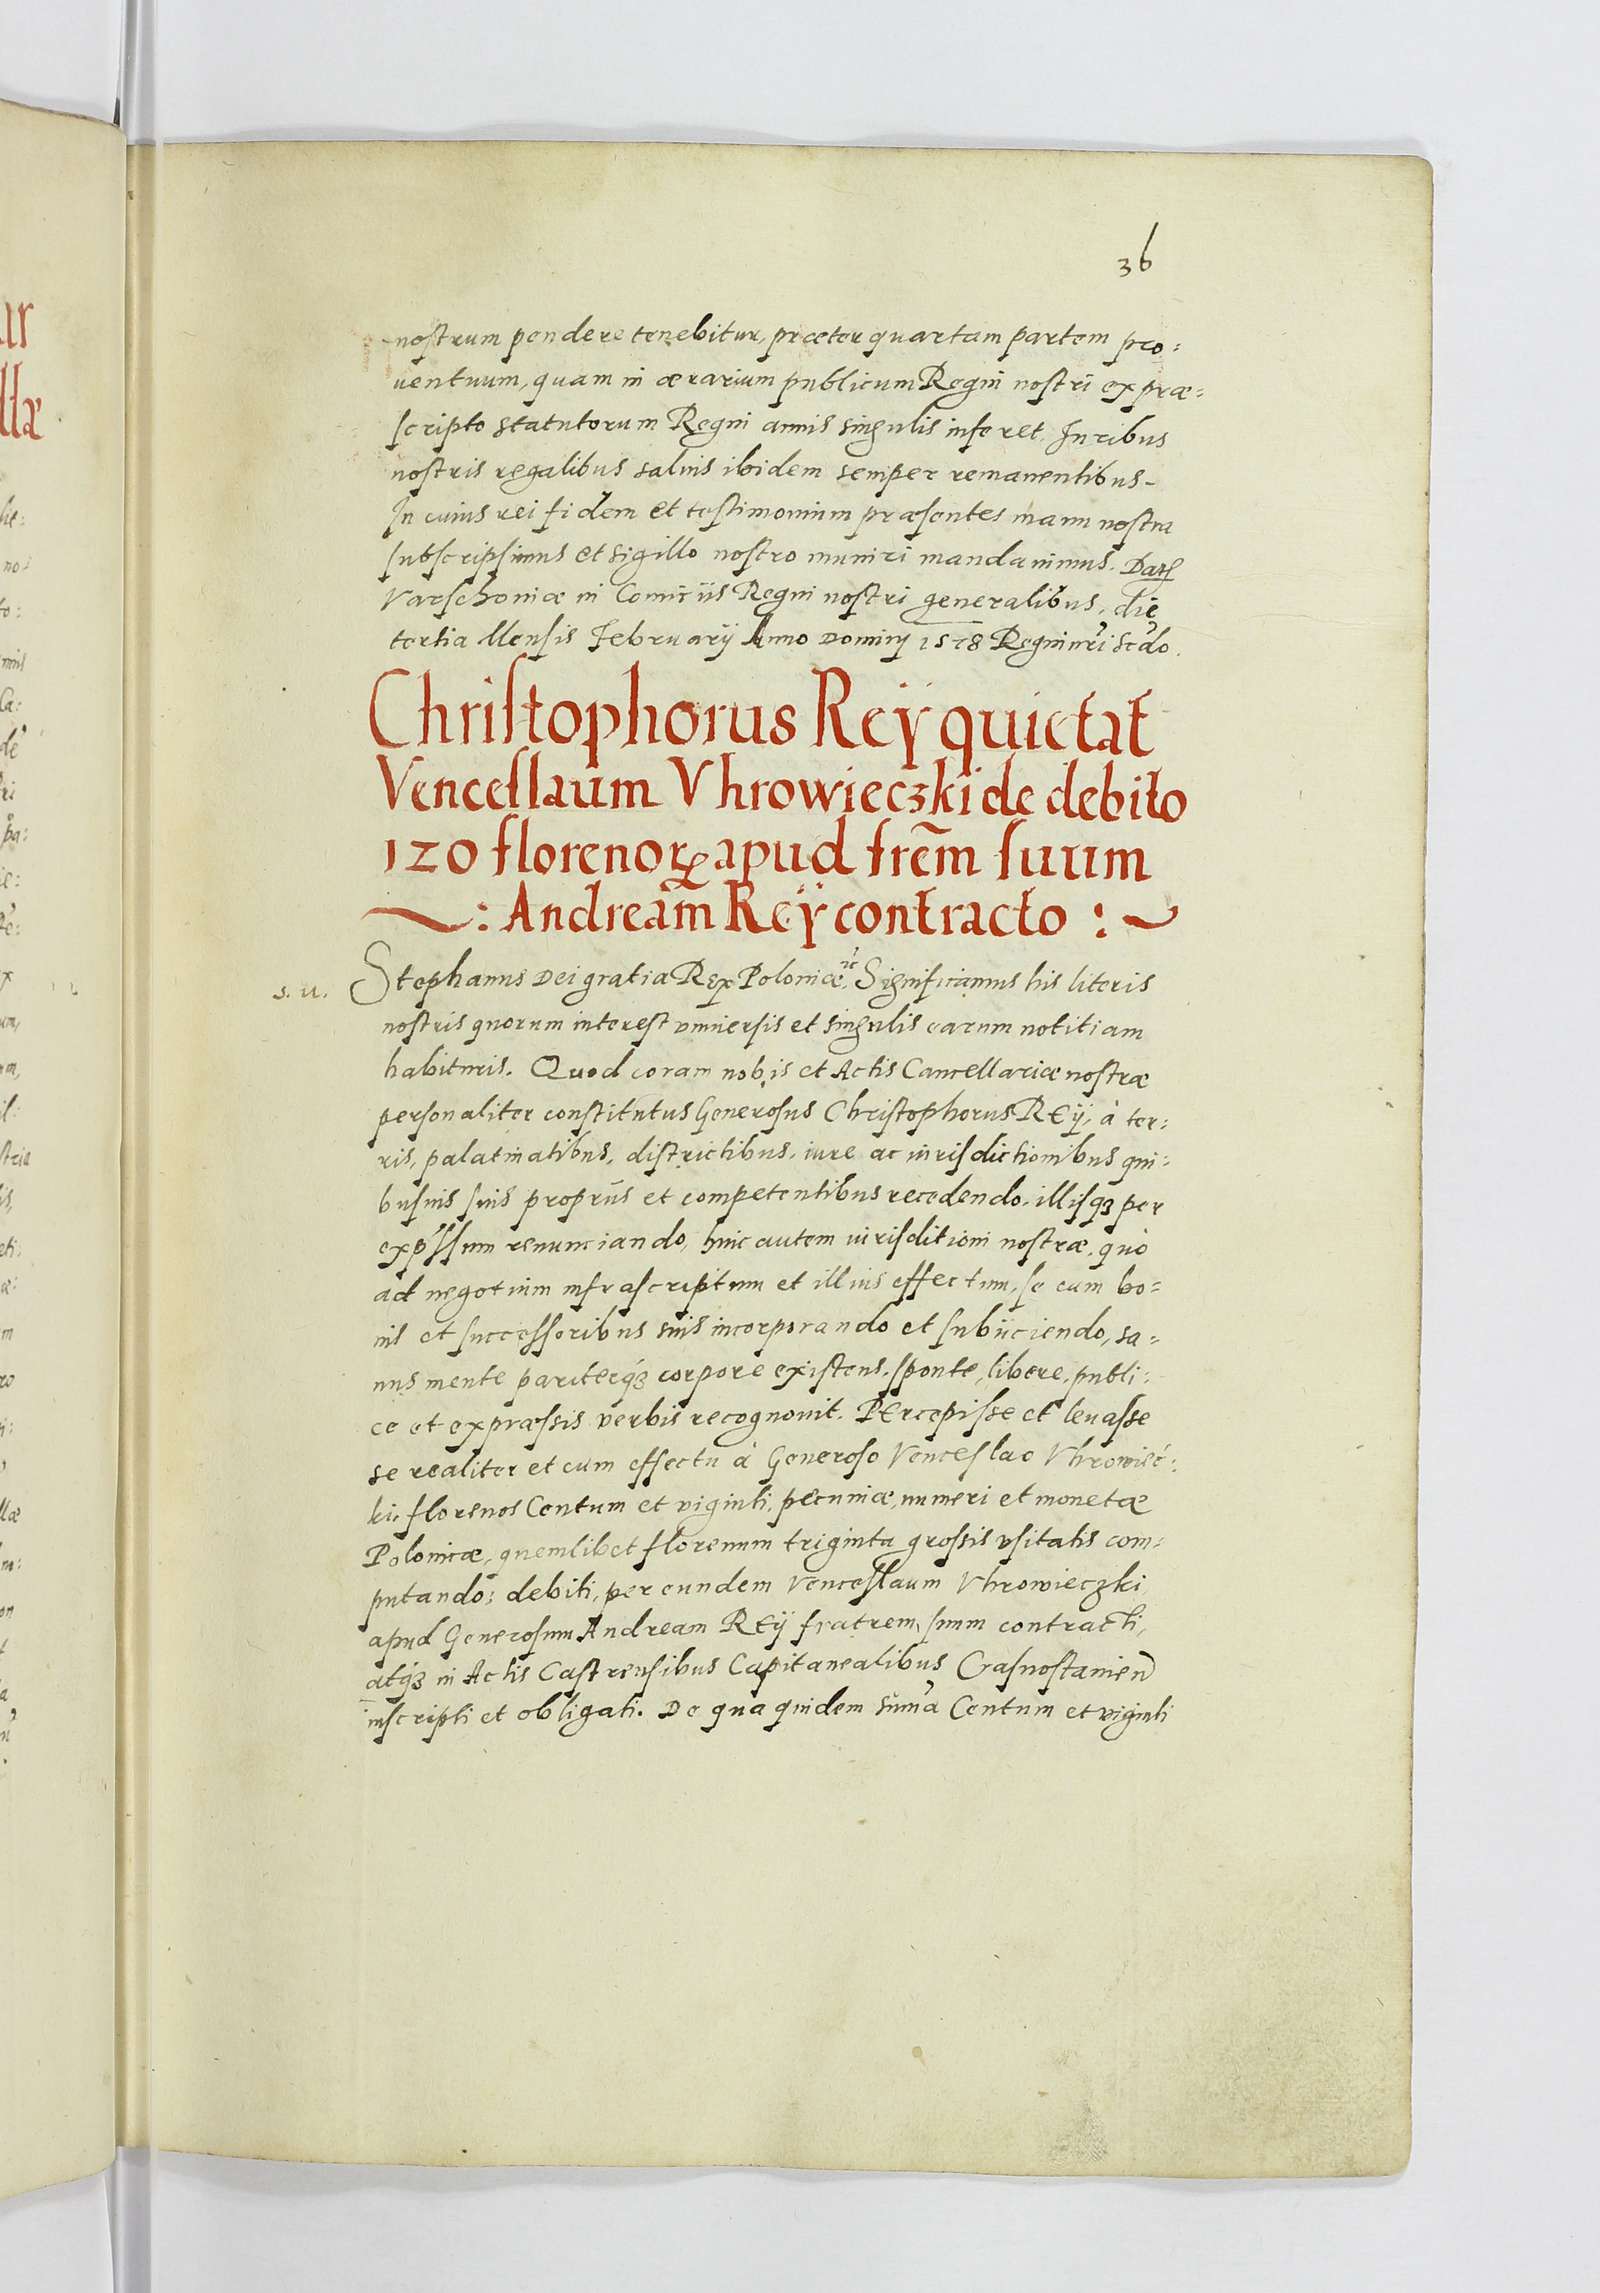 36
nostrum pendere tenebitur, præter quartam partem pro:
uentuum, quam in ærarium publicum Regni nostri ex præ=
scripto statutorum Regni annis singulis inferet. Iuribus
nostris regalibus saluis ibidem semper remanentibus-
In cuius rei fidem et testimonium præsentes manu nostra
subscripsimus et sigillo nostro muniri mandauimus. Dat
Varschouiæ in Comitiis Regni nostri generalibus, die
tertia Mensis February Anno Dominj 1578 Regni nri scdo.
Christophorus Reÿ quietat
Venceslaum Vhrowieczki de debito
120 florenorꝝ apud frēm suum
: Andream Reÿ contracto :
s. u.
Stephanus Dei gratia Rex Poloniæ ꝛc Significamus his literis
nostris quorum interest vniuersis et singulis earum notitiam
habituris. Quod coram nobis et Actis Cancellariæ nostræ
personaliter constitutus Generosus Christophorus REÿ, à ter:
ris, palatinatibus, districtibus, iure ac iurisdictionibus qui:
busuis suis proprijs et competentibus recedendo, illisqꝫ per
exp̃ssum renunciando, huic autem iurisditioni nostræ, quò
ad negotium infrascriptum et illius effectum, se cum bo=
nis et successoribus suis incorporando et subÿciendo, sa=
nus mente pariterqꝫ corpore existens, sponte, libere, publi:
ce et expræssis verbis recognouit. PErcepisse et leuasse
se realiter et cum effectu à Generoso Venceslao Vhrowiec:
ki, florenos Centum et viginti, pecuniæ, numeri et monetæ
Polonicæ, quemlibet florenum triginta grossis vsitatis com:
putando: debiti, per eundem Venceslaum Vhrowieczki
apud Generosum Andream REÿ fratrem suum contracti,
atqꝫ in Actis Castrensibus Capitanealibus Crasnostauien
inscripti et obligati. De qua quidem suma Centum et viginti